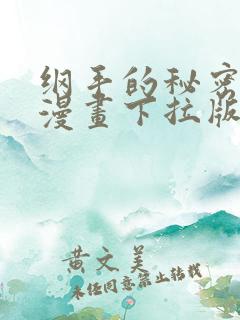 纲手的秘密
漫畫下拉版
黄文美
未经同意禁止转载